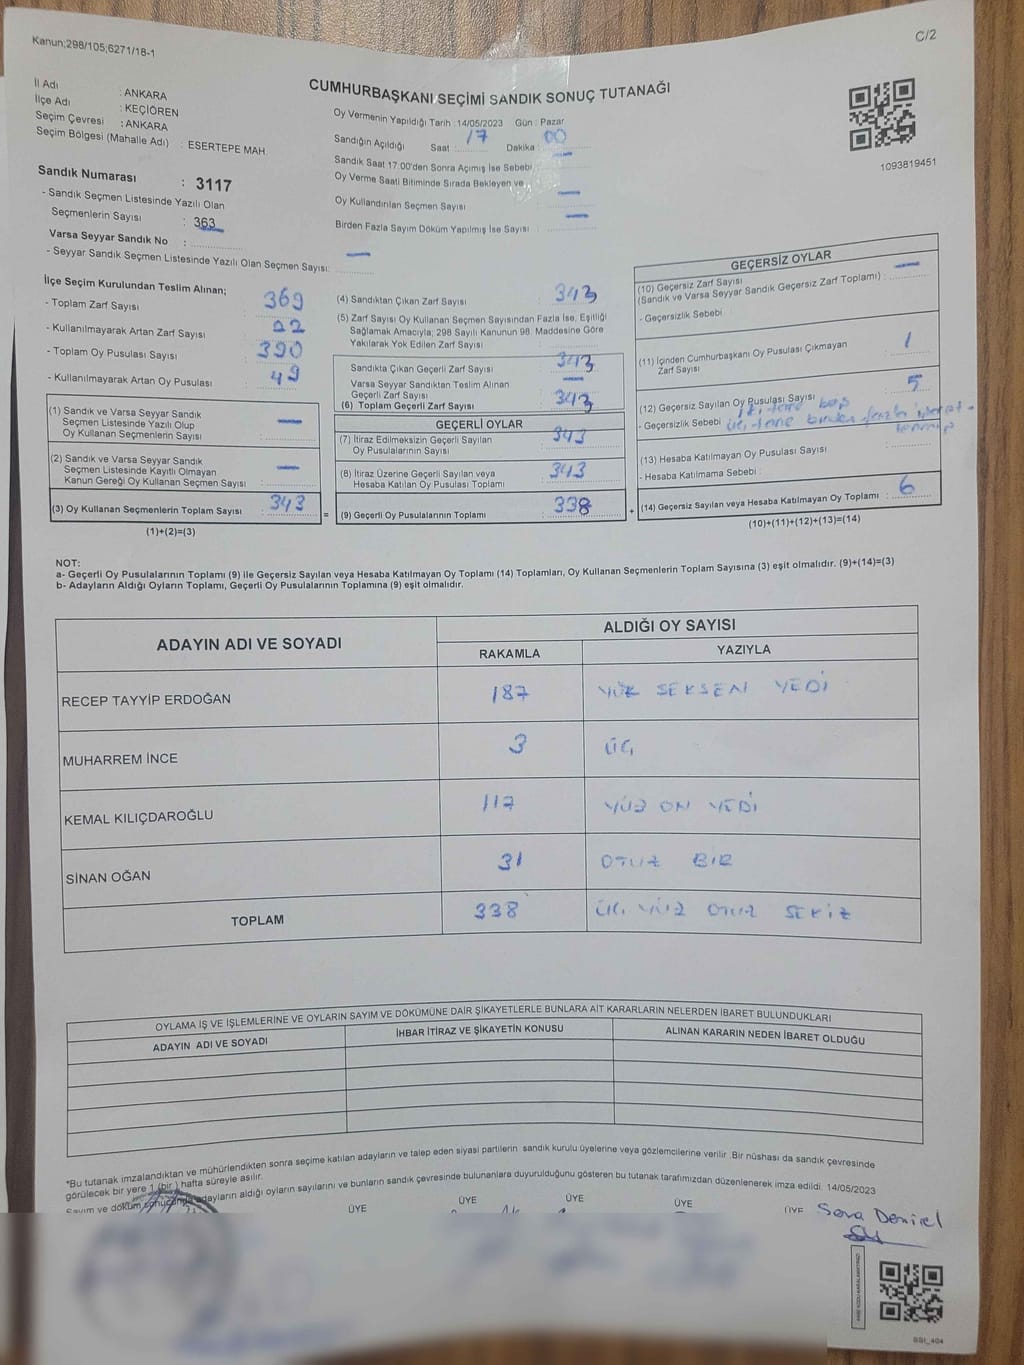 Kanun:298/105;6271/18-1
C/2
CUMHURBAŞKANI SEÇİMİ SANDIK SONUÇ TUTANAĞI
İl Adı : ANKARA
İlçe Adı : KEÇİÖREN
Seçim Çevresi : ANKARA
Seçim Bölgesi (Mahalle Adı) : ESERTEPE MAH.
Sandık Numarası : 3117
- Sandık Seçmen Listesinde Yazılı Olan
Seçmenlerin Sayısı : 363
Varsa Seyyar Sandık No :
- Seyyar Sandık Seçmen Listesinde Yazılı Olan Seçmen Sayısı: —
Oy Vermenin Yapıldığı Tarih : 14/05/2023 Gün : Pazar
Sandığın Açıldığı Saat : 17 Dakika : 00
Sandık Saat 17:00'den Sonra Açımış İse Sebebi : —
Oy Verme Saati Bitiminde Sırada Bekleyen ve
Oy Kullandırılan Seçmen Sayısı : —
Birden Fazla Sayım Döküm Yapılmış İse Sayısı : —
1093819451
İlçe Seçim Kurulundan Teslim Alınan;
- Toplam Zarf Sayısı : 369
- Kullanılmayarak Artan Zarf Sayısı : 22
- Toplam Oy Pusulası Sayısı : 390
- Kullanılmayarak Artan Oy Pusulası : 49
(1) Sandık ve Varsa Seyyar Sandık
Seçmen Listesinde Yazılı Olup
Oy Kullanan Seçmenlerin Sayısı : —
(2) Sandık ve Varsa Seyyar Sandık
Seçmen Listesinde Kayıtlı Olmayan
Kanun Gereği Oy Kullanan Seçmen Sayısı : —
(3) Oy Kullanan Seçmenlerin Toplam Sayısı : 343
(1)+(2)=(3)
(4) Sandıktan Çıkan Zarf Sayısı : 343
(5) Zarf Sayısı Oy Kullanan Seçmen Sayısından Fazla İse, Eşitliği
Sağlamak Amacıyla; 298 Sayılı Kanunun 98. Maddesine Göre
Yakılarak Yok Edilen Zarf Sayısı :
Sandıkta Çıkan Geçerli Zarf Sayısı : 343
Varsa Seyyar Sandıktan Teslim Alınan
Geçerli Zarf Sayısı : —
(6) Toplam Geçerli Zarf Sayısı : 343
GEÇERLİ OYLAR
(7) İtiraz Edilmeksizin Geçerli Sayılan
Oy Pusulalarının Sayısı : 343
(8) İtiraz Üzerine Geçerli Sayılan veya
Hesaba Katılan Oy Pusulası Toplamı : 343
(9) Geçerli Oy Pusulalarının Toplamı : 338
GEÇERSİZ OYLAR
(10) Geçersiz Zarf Sayısı
(Sandık ve Varsa Seyyar Sandık Geçersiz Zarf Toplamı) : —
- Geçersizlik Sebebi
(11) İçinden Cumhurbaşkanı Oy Pusulası Çıkmayan
Zarf Sayısı : 1
(12) Geçersiz Sayılan Oy Pusulası Sayısı : 5
iki tane boş
- Geçersizlik Sebebi üç tane birden fazla
(13) Hesaba Katılmayan Oy Pusulası Sayısı
- Hesaba Katılmama Sebebi :
(14) Geçersiz Sayılan veya Hesaba Katılmayan Oy Toplamı : 6
(10)+(11)+(12)+(13)=(14)
NOT:
a- Geçerli Oy Pusulalarının Toplamı (9) ile Geçersiz Sayılan veya Hesaba Katılmayan Oy Toplamı (14) Toplamları, Oy Kullanan Seçmenlerin Toplam Sayısına (3) eşit olmalıdır. (9)+(14)=(3)
b- Adayların Aldığı Oyların Toplamı, Geçerli Oy Pusulalarının Toplamına (9) eşit olmalıdır.
ADAYIN ADI VE SOYADI ALDIĞI OY SAYISI
RAKAMLA YAZIYLA
RECEP TAYYİP ERDOĞAN 187 YÜZ SEKSEN YEDİ
MUHARREM İNCE 3 ÜÇ
KEMAL KILIÇDAROĞLU 117 YÜZ ON YEDİ
SİNAN OĞAN 31 OTUZ BİR
TOPLAM 338 ÜÇ YÜZ OTUZ SEKİZ
OYLAMA İŞ VE İŞLEMLERİNE VE OYLARIN SAYIM VE DÖKÜMÜNE DAİR ŞİKAYETLERLE BUNLARA AİT KARARLARIN NELERDEN İBARET BULUNDUKLARI
ADAYIN ADI VE SOYADI İHBAR İTİRAZ VE ŞİKAYETİN KONUSU ALINAN KARARIN NEDEN İBARET OLDUĞU
*Bu tutanak imzalandıktan ve mühürlendikten sonra seçime katılan adayların ve talep eden siyasi partilerin sandık kurulu üyelerine veya gözlemcilerine verilir .Bir nüshası da sandık çevresinde
görülecek bir yere 1 (bir) hafta süreyle asılır.
Sayım ve döküm sonucunda adayların aldığı oyların sayılarını ve bunların sandık çevresinde bulunanlara duyurulduğunu gösteren bu tutanak tarafımızdan düzenlenerek imza edildi. 14/05/2023
ÜYE ÜYE ÜYE ÜYE ÜYE Sena Demirel
SSI_404